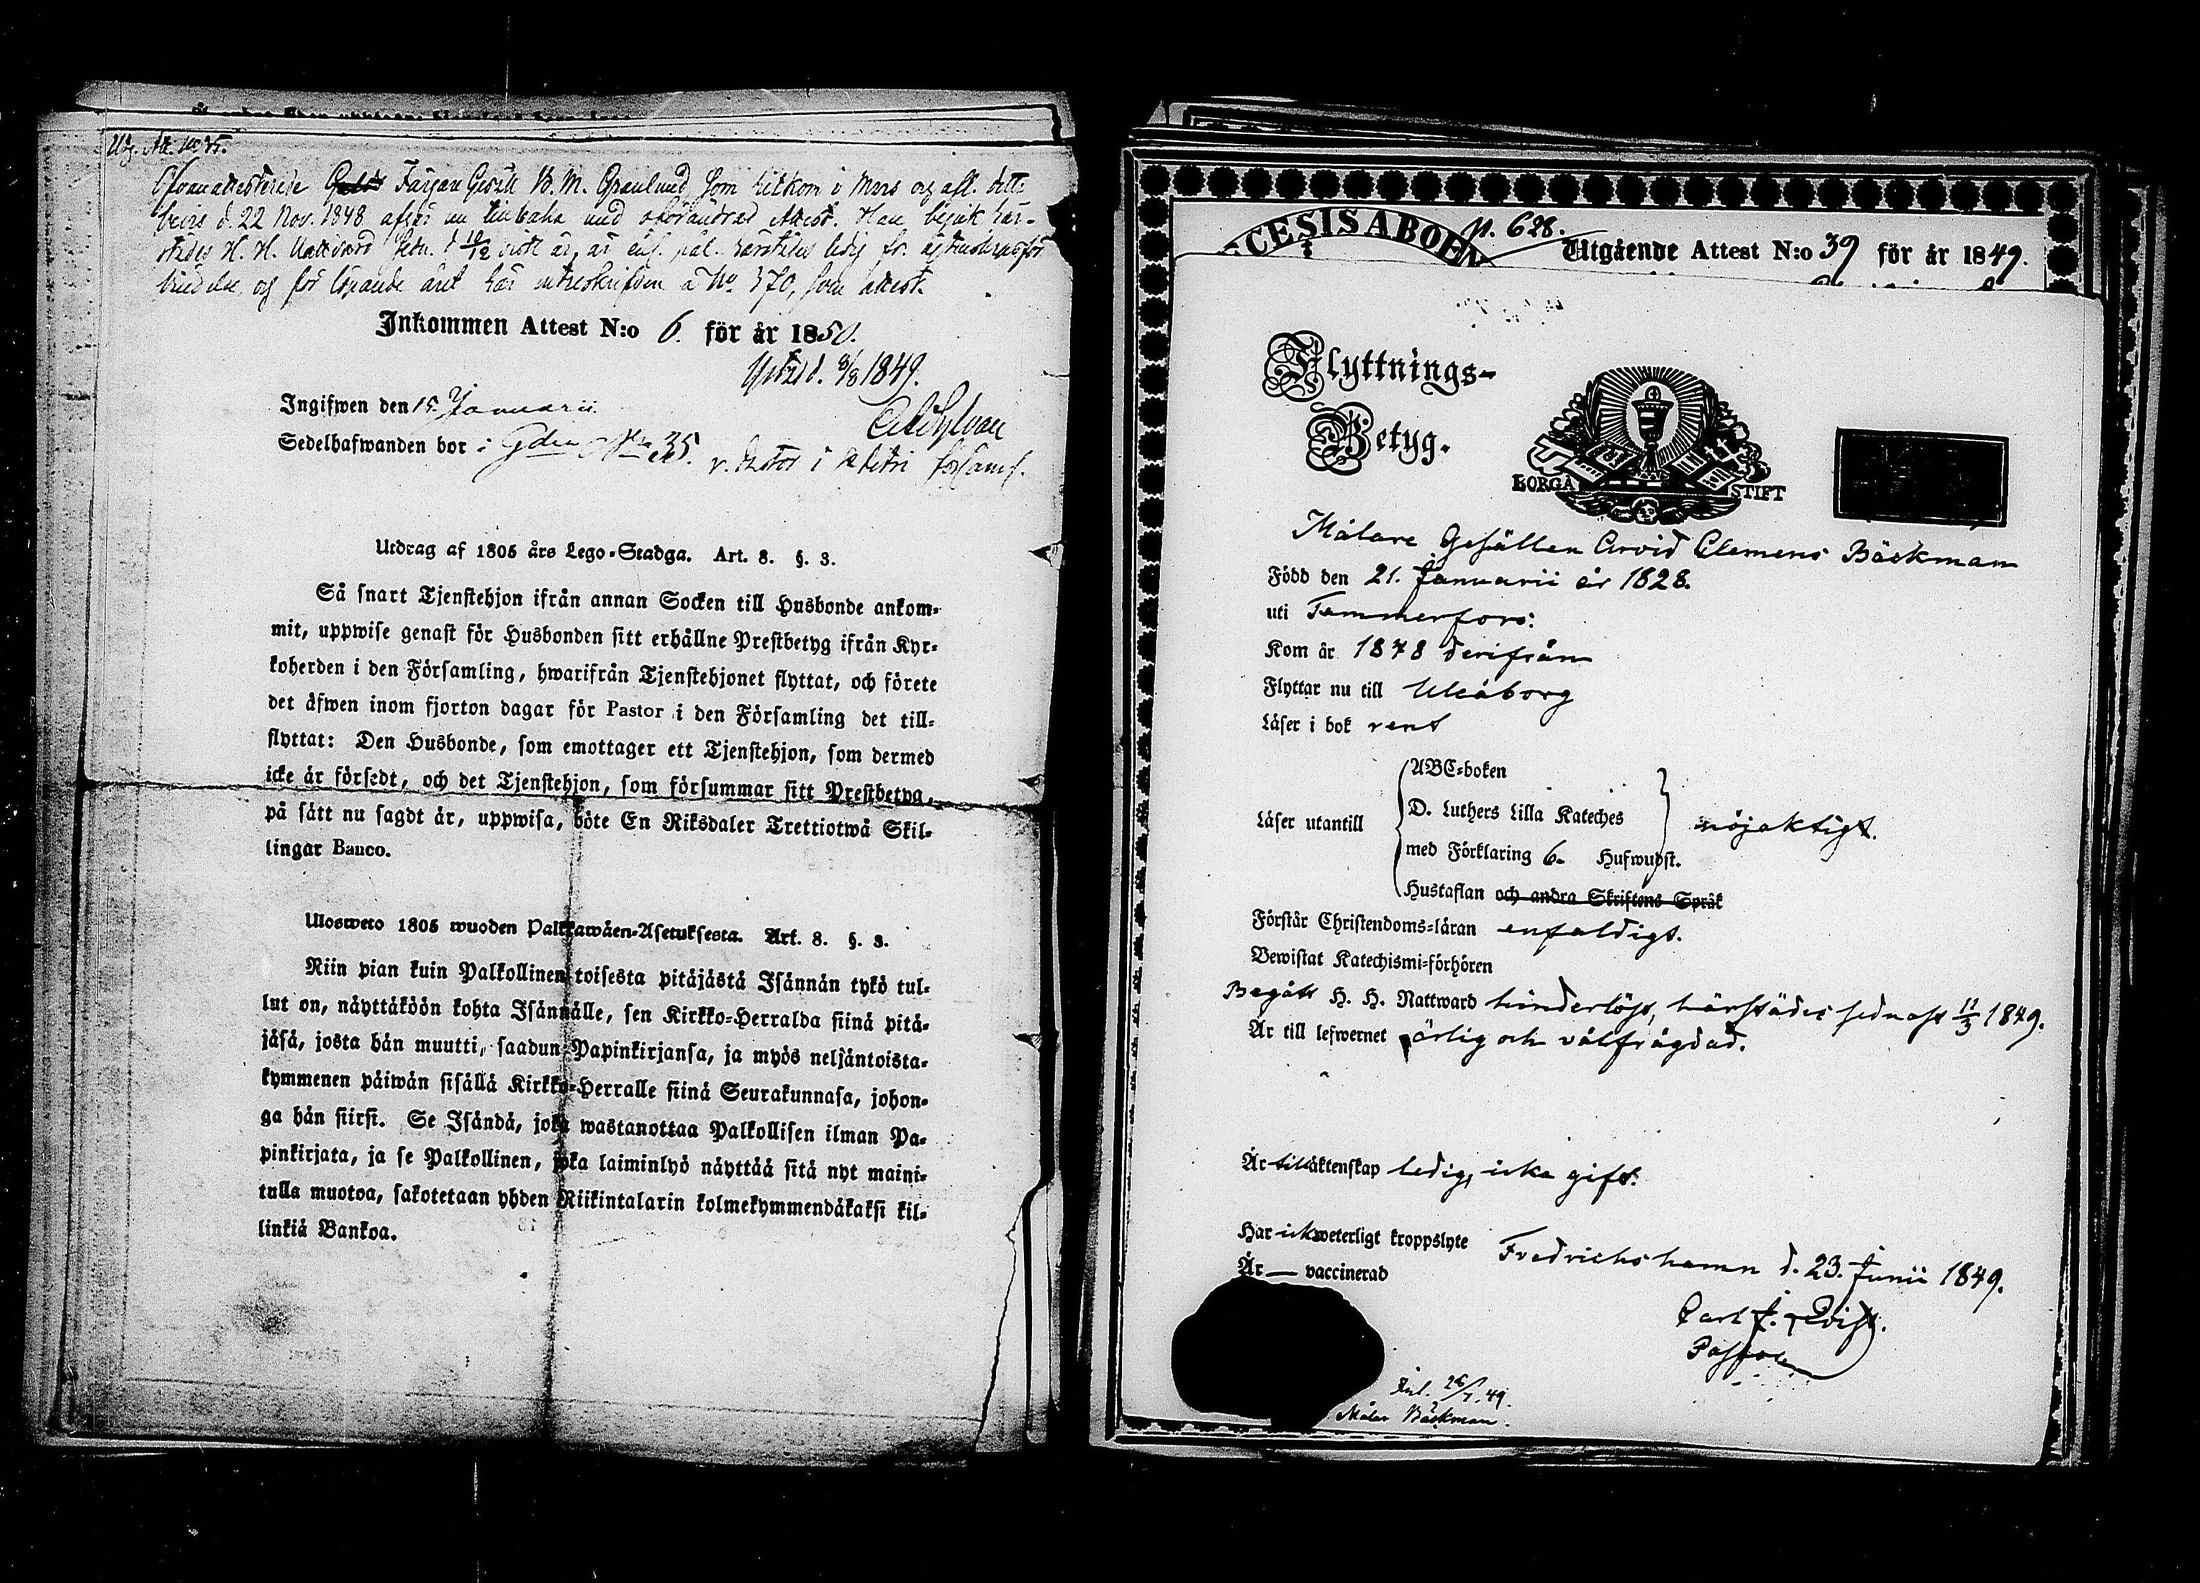 Utg. Att. No 35.
Ofvanattesterade Färgare Gesäll B. M. Granlund, som hitkom i Mars och afl. dett.
d. 22 Nov. 1848 åter nu tillbaka med oförändrad Attest. Han begick här-
städes H. H. Nattvard sedn. d. är ledig fr. äktenskapsför
bindelse och för löpande året här mantalskrifven å No 370, som attest.
Inkommen Attest N:o 6. för år 1850.
d. 8/8 1849.
Ingifwen den 15. Januarii
C A Sylvan
Sedelhafwanden bor i Gden No 35.
v. Pastor i församl.
Utdrag af 1805 års Lego-Stadga. Art. 8. §. 3.
Så snart Tjenstehjon ifrån annan Socken till Husbonde ankom-
mit, uppwise genast för Husbonden sitt erhållne Prestbetyg ifrån Kyr-
koherden i den Församling, hwarifrån Tjenstehjonet flyttat, och förete
det äfwen inom fjorton dagar för Pastor i den Församling det till-
flyttat: Den Husbonde, som emottager ett Tjenstehjon, som dermed
icke är försedt, och det Tjenstehjon, som försummar sitt Prestbetyg,
på sätt nu sagdt är, uppwisa, böte En Riksdaler Trettiotwå Skil-
lingar Banco.
Ulosweto 1805 wuoden Palkkawäen-Asetuksesta. Art. 8. §. 3.
Niin pian kuin Palkollinen toisesta pitäjästä Isännän tykö tul-
lut on, näyttäköön kohta Isännälle, sen Kirkko-Herralda siinä pitä-
jäsä, josta hän muutti, saadun Papinkirjansa, ja myös neljäntoista-
kymmenen päiwän sisällä Kirkko-Herralle siinä Seurakunnasa, johon-
ga hän siirsi. Se Isändä, joka wastanottaa Palkollisen ilman Pa-
pinkirjata, ja se Palkollinen, joka laiminlyö näyttää sitä nyt maini-
tulla muotoa, sakotetaan yhden Riikintalarin kolmekymmendäkaksi kil-
linkiä Bankoa.
ECESIS ABOEN
p. 628.
Utgående Attest N:o 39 för år 1849.
Flyttnings-
Betyg.
BORGÅ STIFT
Målare Gesällen Arvid Clemens Bäckman
Född den 21. Januarii år 1828.
uti Tammerfors:
Kom år 1848 derifrån
Flyttar nu till Uleåborg
Läser i bok rent
ABC-boken
D. Luthers Lilla Kateches
Läser utantill
nöjaktigt.
med Förklaring 6. Hufwudst.
Hustaflan och andra Skriftens Språk
Förstår Christendoms-läran enfaldigt.
Bewistat Katechismi-förhören
Begått H. H. Nattward hinderlöst, härstädes sednast 11/3 1849.
Är till lefwernet ärlig och välfrägdad.
Är till äktenskap ledig, icke gift.
Har icke weterligt kroppslyte
Fredrichshamn d. 23. Junii 1849.
Är — vaccinerad
Carl J. Qvist.
Pastor
Inl. 26/7. 49.
Målar Bäckman.